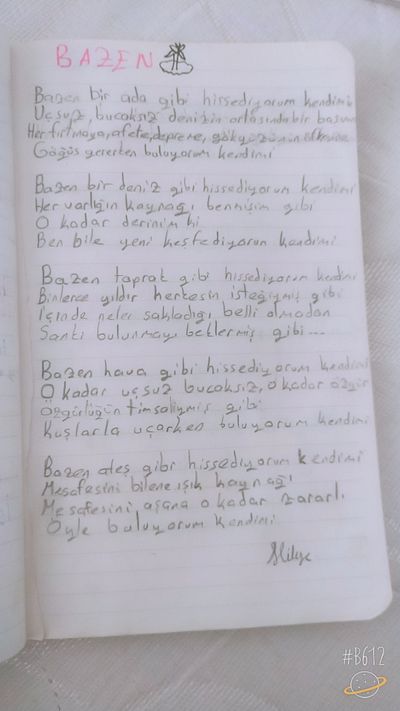 BAZEN
Bazen bir ada gibi hissediyorum kendimi
Uçsuz, bucaksız denizin ortasında bir başıma
Her fırtınaya, afete, depreme, gökyüzünün öfkesine
Göğüs gererken buluyorum kendimi
Bazen bir deniz gibi hissediyorum kendimi
Her varlığın kaynağı benmişim gibi
O kadar derinim ki
Ben bile yeni keşfediyorum kendimi
Bazen toprak gibi hissediyorum kendimi
Binlerce yıldır herkesin isteğiymiş gibi
İçinde neler sakladığı belli olmadan
Sanki bulunmayı beklermiş gibi...
Bazen hava gibi hissediyorum kendimi
O kadar uçsuz bucaksız, o kadar özgür
Özgürlüğün timsaliymiş gibi
Kuşlarla uçarken buluyorum kendimi
Bazen ateş gibi hissediyorum kendimi
Mesafesini bilene ışık kaynağı
Mesafesini aşana o kadar zararlı
Öyle buluyorum kendimi
#B612